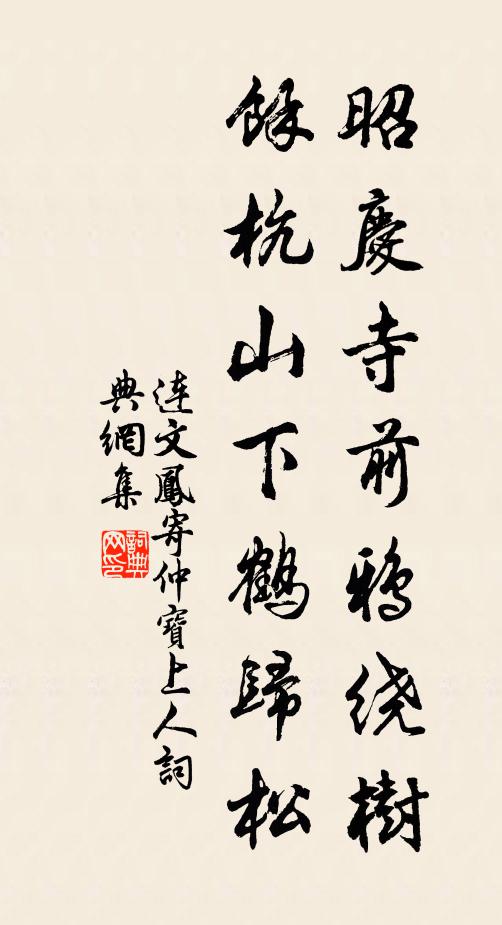 昭慶寺前鴉绕樹
餘杭山下鶴歸松
連文鳳寄仲寶上人詞
典網集
詞典
网印